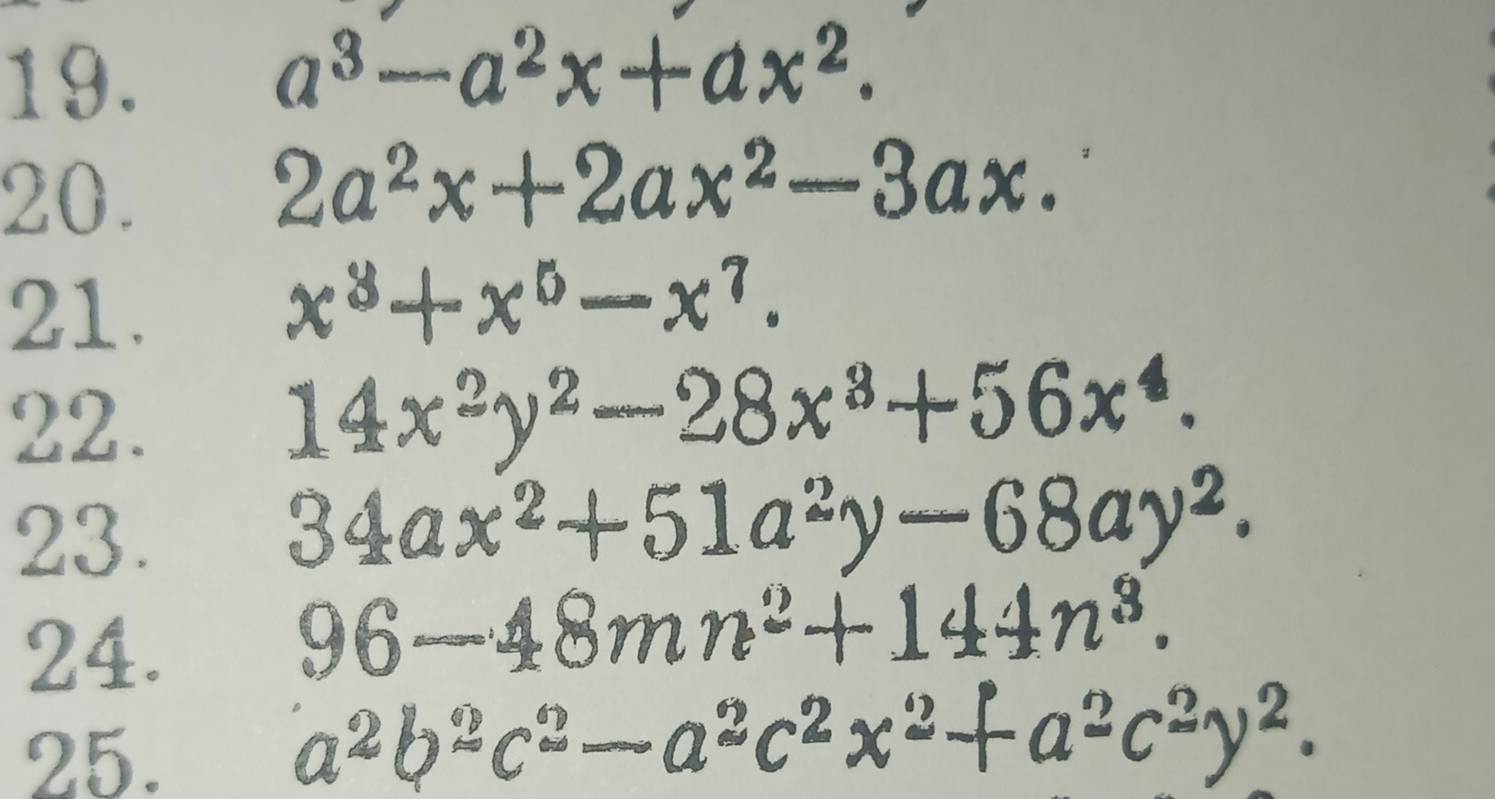 19. a³—a²x+ax².
20. 2a²x+2ax²—3ax.
21. x³+x⁵—x⁷.
22. 14x²y²—28x³+56x⁴.
23. 34ax²+51a²y—68ay².
24. 96—48mn²+144n³.
25. a²b²c²—a²c²x²+a²c²y².